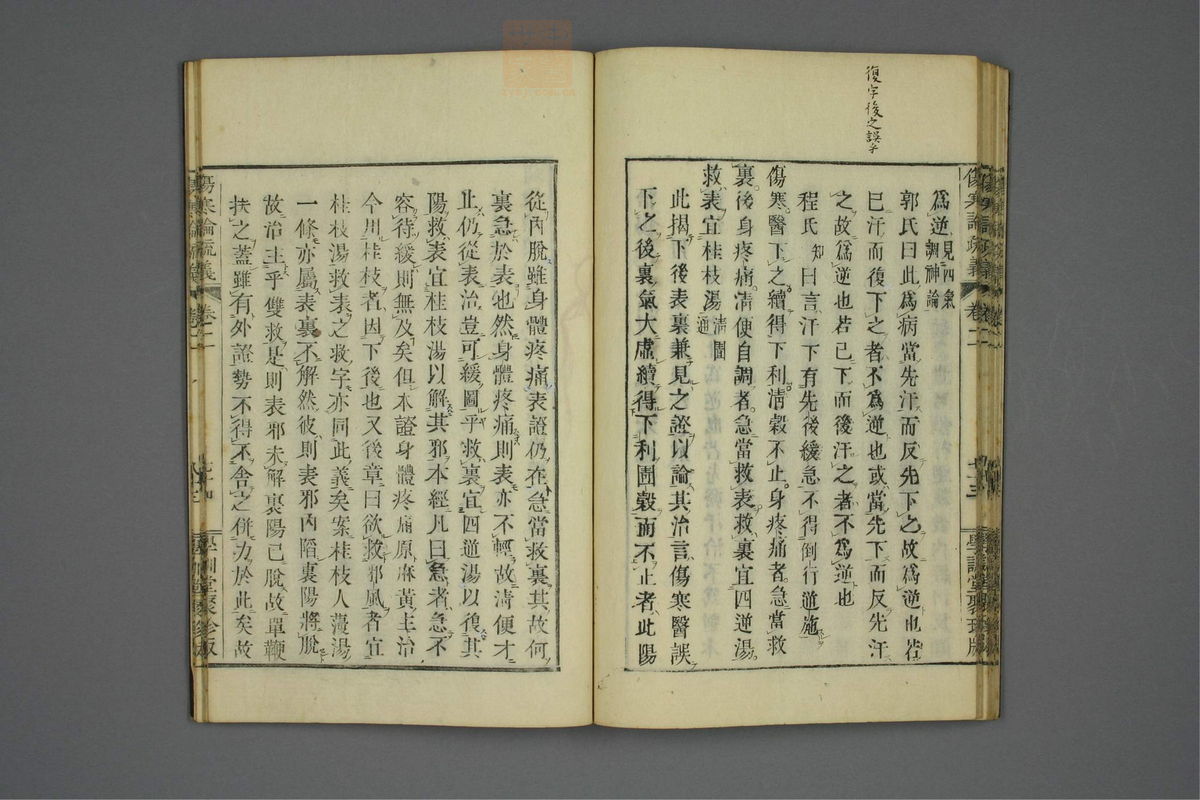 復字後之誤乎
傷寒論疏義 卷二 七十三 學訓堂聚珍版
爲逆見四氣調神論
郭氏曰此爲病當先汗而反先下之故爲逆也若
已汗而後下之者不爲逆也或當先下而反先汗
之故爲逆也若已下而後汗之者不爲逆也
程氏知曰言汗下有先後緩急不得倒行逆施
傷寒醫下之續得下利清穀不止身疼痛者急當救
裏後身疼痛清便自調者急當救表救裏宜四逆湯
救表宜桂枝湯清圊通
此揭下後表裏兼見之證以論其治言傷寒醫誤
下之後裏氣大虛續得下利圊穀而不止者此陽
從內脫雖身體疼痛表證仍在急當救裏其故何
裏急於表也然身體疼痛則表亦不輕故清便才
止仍從表治豈可緩圖乎救裏宜四逆湯以復其
陽救表宜桂枝湯以解其邪本經凡曰急者急不
容待緩則無及矣但本證身體疼痛原麻黃主治
今用桂枝者因下後也又後章曰欲救邪風者宜
桂枝湯救表之救字亦同此義矣案桂枝人參湯
一條亦屬表裏不解然彼則表邪內陷裏陽將脫
故治主乎雙救是則表邪未解裏陽已脫故單鞭
扶之蓋雖有外證勢不得不舍之併力於此矣故
傷寒論疏義 卷二